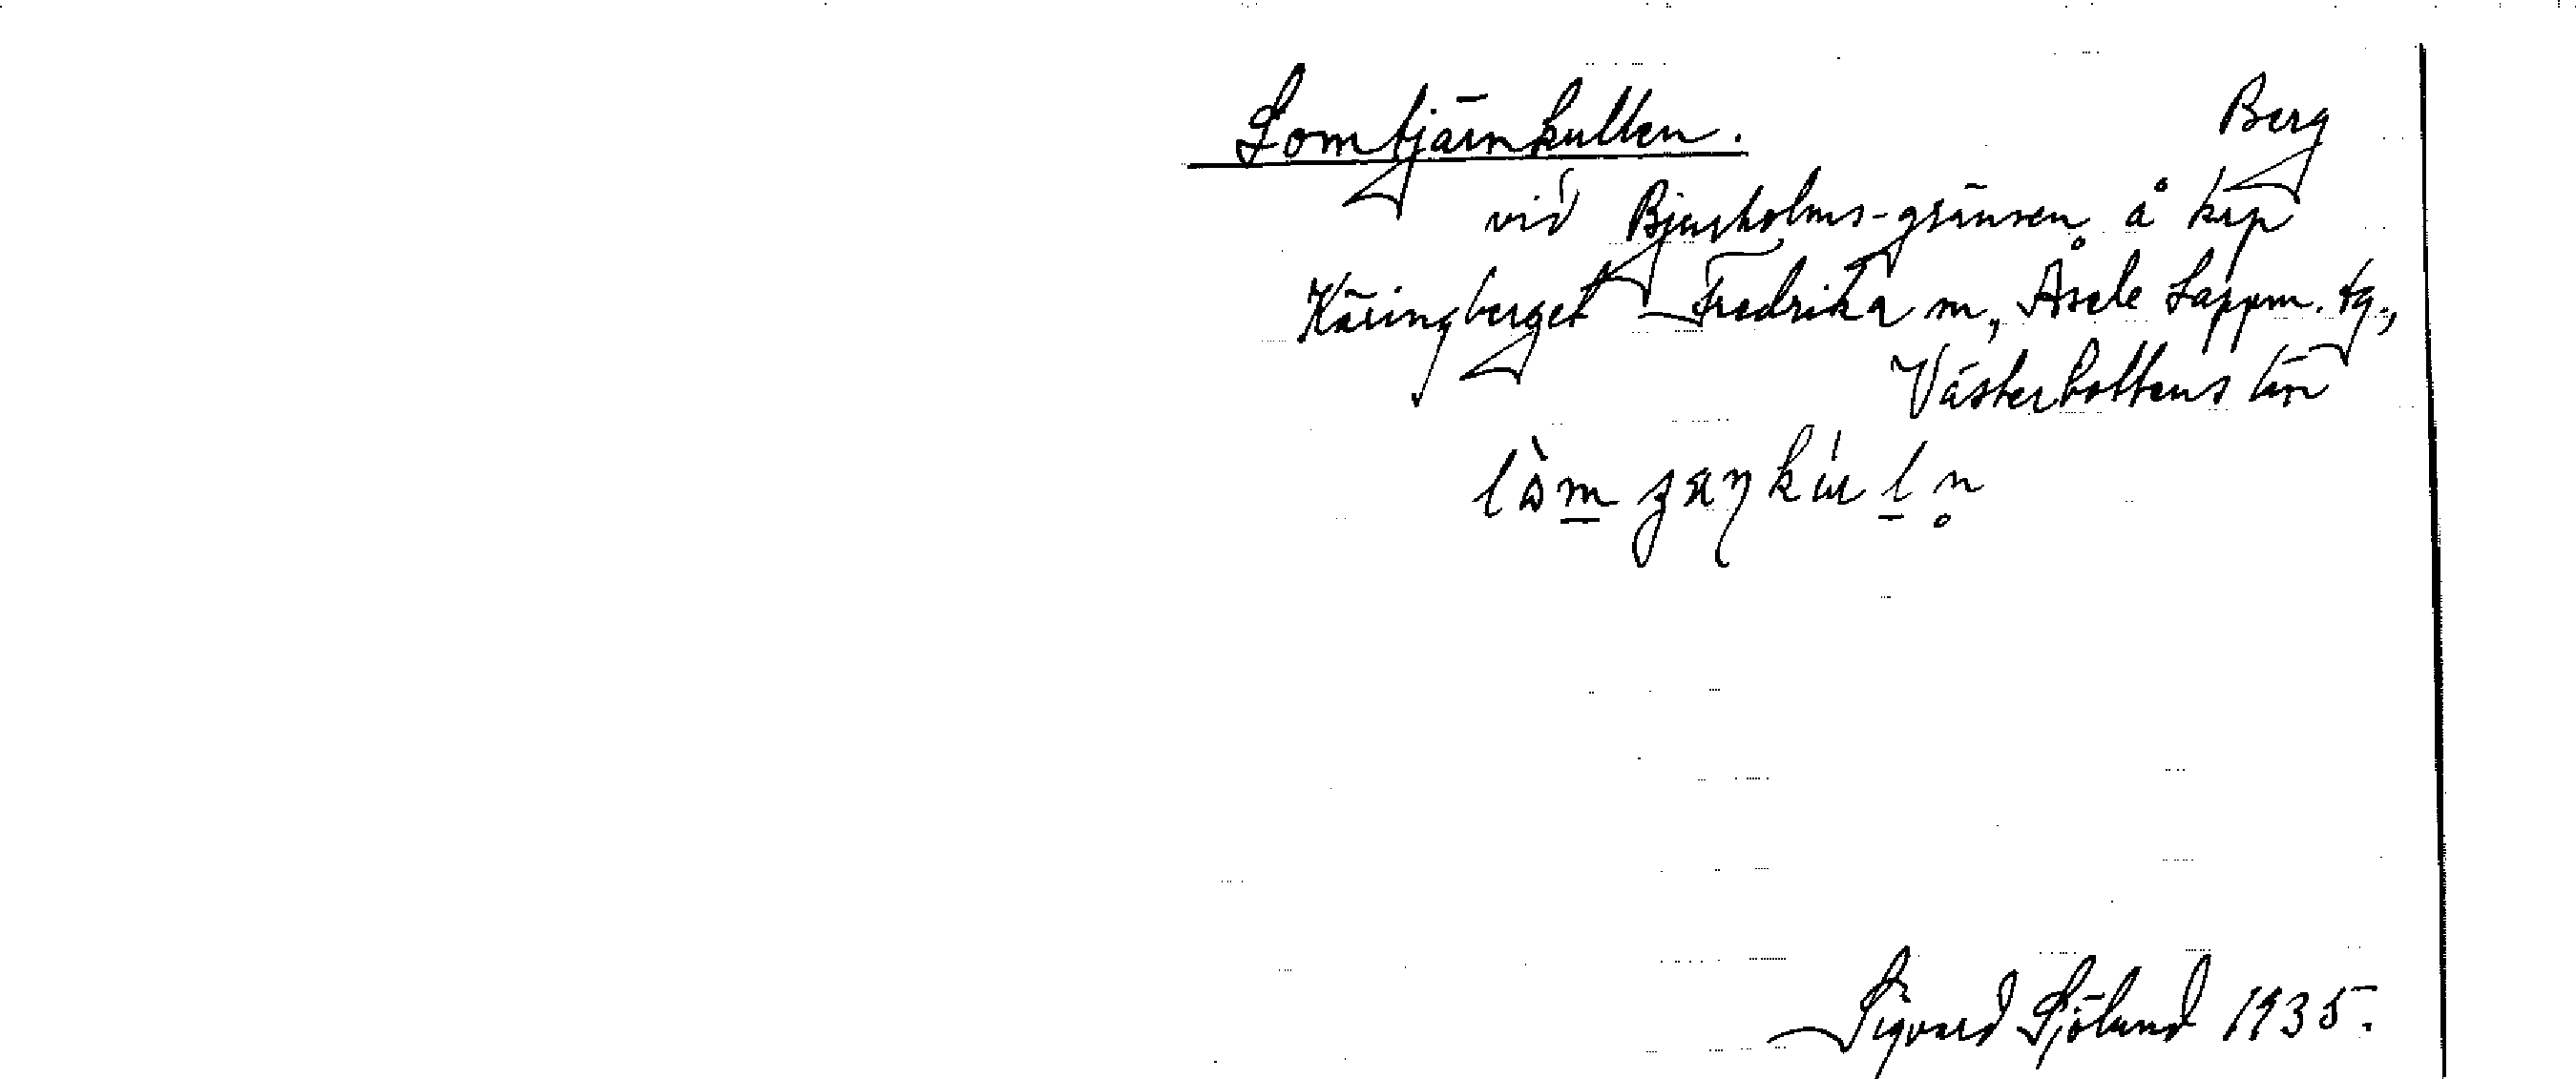 Lomtjärnkullen. Berg
vid Bjurholms-gränsen å krp
Käringberget Fredrika sn, Åsele Lappm. tg.,
Västerbottens län
Sigvard Sjölund 1935.